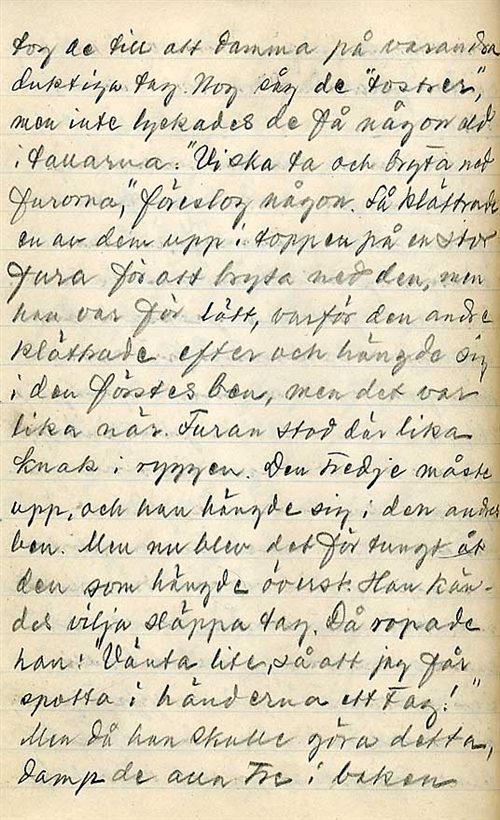 tog de till att damma på varandra
duktiga tag. Nog såg de "tostrer",
men inte lyckades de få någon eld
i tallarna. "Vi ska ta och bryta ned
furorna," föreslog någon. Så klättrade
en av dem upp i toppen på en stor
fura för att bryta ned den, men
han var för lätt, varför den andre
klättrade efter och hängde sig
i den förstes ben, men det var
lika när. Furan stod där lika
knak i ryggen. Den tredje måste
upp, och han hängde sig i den andres
ben. Men nu blev det för tungt åt
den som hängde överst. Han kän-
des vilja släppa tag. Då ropade
han: "Vänta lite, så att jag får
spotta i händerna ett tag!"
Men då han skulle göra detta,
damp de alla tre i baken